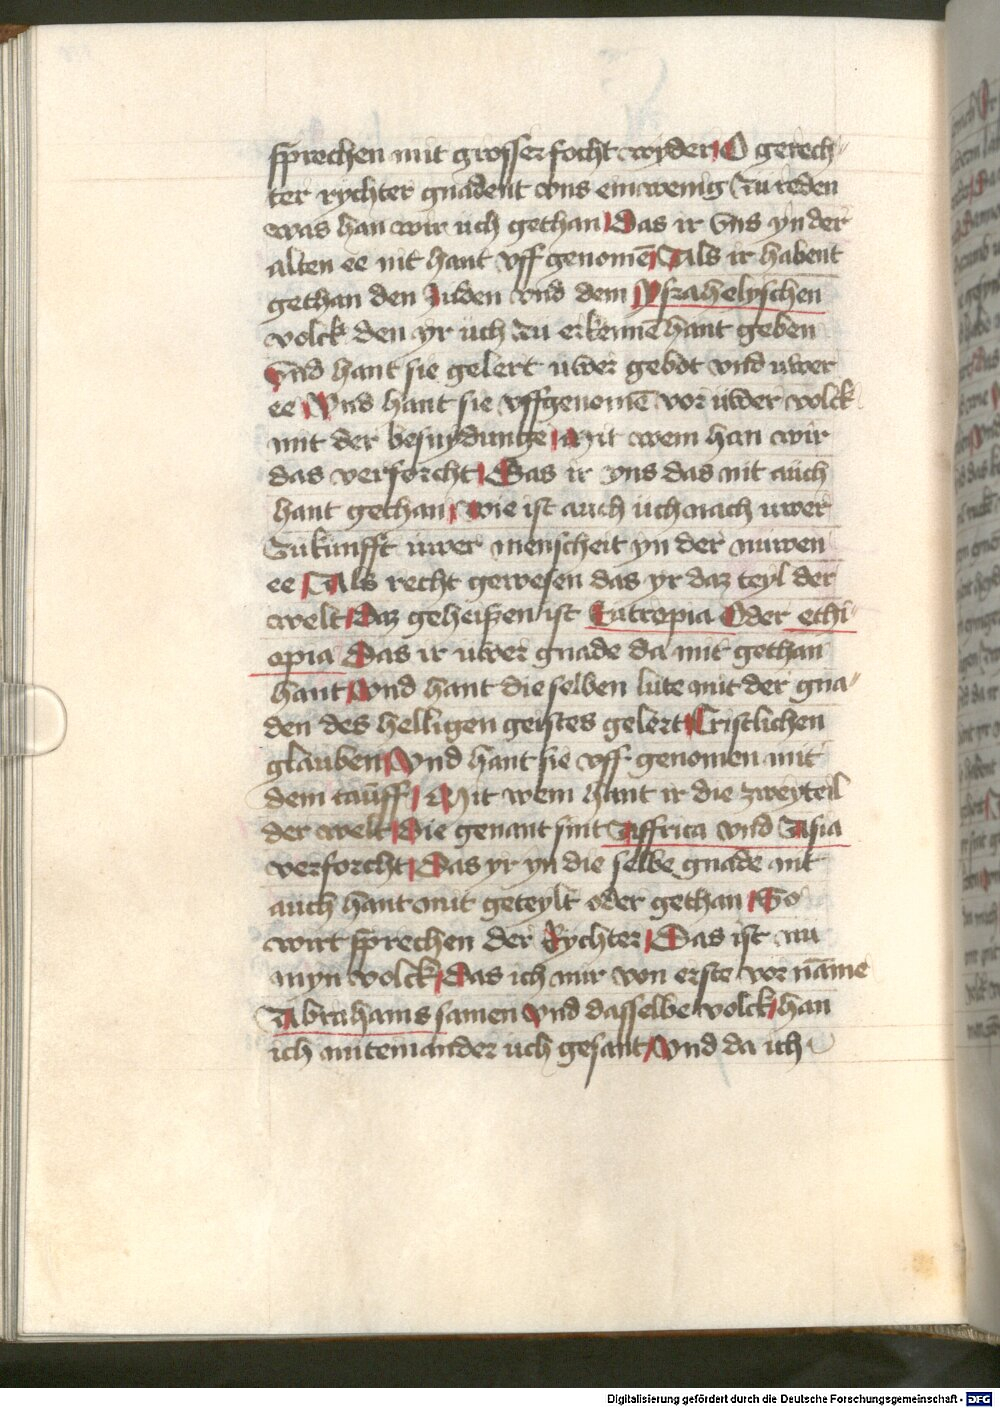 sprechen mit grosser focht wyder O gerech-
ter rychter gnadent vns ein wenig zu reden
was han wir uch gethan Das ir vns yn der
alten ee nit hant vff genomē Als ir habent
gethan den Juden vnd dem Ysrahelyschen
volck den yr uch zu erkennē hant geben
Vnd hant sie gelert uwer gebot vnd uwer
ee Vnd hant sie vffgenomē vor uwer volck
mit der besnydunge Mit wem han wir
das verforcht Das ir vns das nit auch
hant gethan Wie ist auch uch nach uwer
Zukunfft uwer menscheit yn der nuwen
ee Als recht gewesen das yr daz teyl der
welt Daz geheißen ist Eutropia Oder ethi-
opia Das ir uwer gnade da mit gethan
hant Vnd hant die selben lute mit der gna-
den des helligen geistes gelert Cristlichen
glauben Vnd hant sie vff genomen mit
dem tauff Mit wem hant ir die zwey teil
der welt Die genant sint Affrica vnd Asia
verforcht Das yr yn die selbe gnade nit
auch hant mit geteylt oder gethan So
wirt sprechen der Rychter Das ist nu
myn volck Das ich mir von erste vor näme
Abrahams samen Vnd dasselbe volck han
ich mit einander uch gesant Vnd da ich
Digitalisierung gefördert durch die Deutsche Forschungsgemeinschaft - DFG